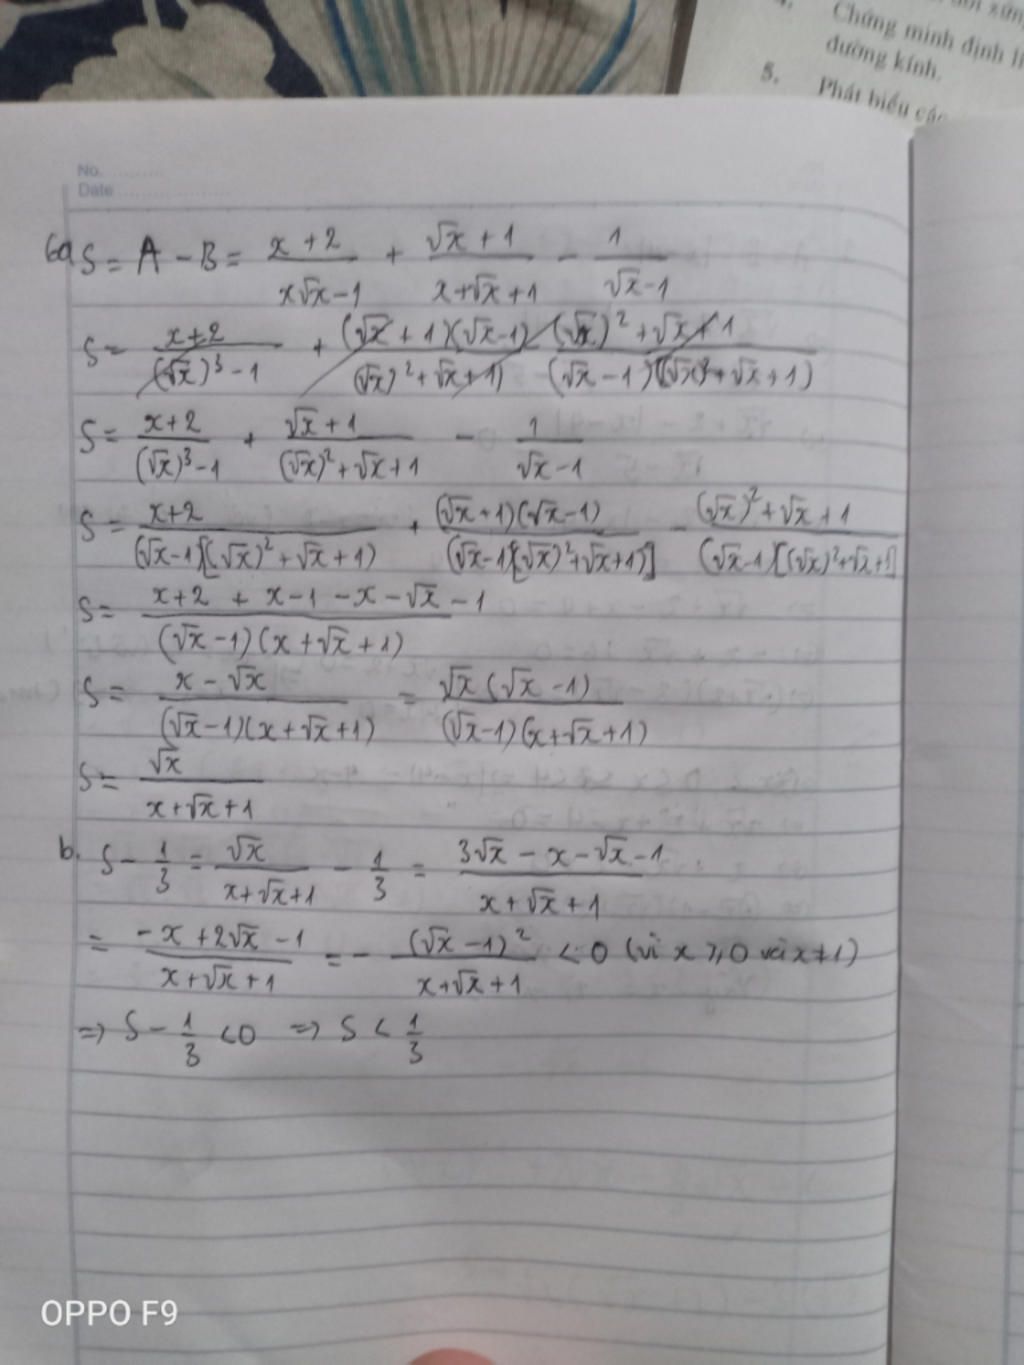 Chứng minh định
đường kính.
5. Phát biểu các
No.
Date
6a, S = A - B = \frac{x+2}{x\sqrt{x}-1} + \frac{\sqrt{x}+1}{x+\sqrt{x}+1} - \frac{1}{\sqrt{x}-1}
S = \frac{x+2}{(\sqrt{x})^3-1} + \frac{(\sqrt{x}+1)(\sqrt{x}-1)}{(\sqrt{x})^2+\sqrt{x}+1)} \frac{(\sqrt{x})^2+\sqrt{x}+1}{(\sqrt{x}-1)[(\sqrt{x})^2+\sqrt{x}+1)}
S = \frac{x+2}{(\sqrt{x})^3-1} + \frac{\sqrt{x}+1}{(\sqrt{x})^2+\sqrt{x}+1} - \frac{1}{\sqrt{x}-1}
S = \frac{x+2}{(\sqrt{x}-1)[(\sqrt{x})^2+\sqrt{x}+1)} + \frac{(\sqrt{x}+1)(\sqrt{x}-1)}{(\sqrt{x}-1)[(\sqrt{x})^2+\sqrt{x}+1)]} - \frac{(\sqrt{x})^2+\sqrt{x}+1}{(\sqrt{x}-1)[(\sqrt{x})^2+\sqrt{x}+1]}
S = \frac{x+2+x-1-x-\sqrt{x}-1}{(\sqrt{x}-1)(x+\sqrt{x}+1)}
S = \frac{x-\sqrt{x}}{(\sqrt{x}-1)(x+\sqrt{x}+1)} = \frac{\sqrt{x}(\sqrt{x}-1)}{(\sqrt{x}-1)(x+\sqrt{x}+1)}
S = \frac{\sqrt{x}}{x+\sqrt{x}+1}
b, S - \frac{1}{3} = \frac{\sqrt{x}}{x+\sqrt{x}+1} - \frac{1}{3} = \frac{3\sqrt{x}-x-\sqrt{x}-1}{x+\sqrt{x}+1}
= \frac{-x+2\sqrt{x}-1}{x+\sqrt{x}+1} = - \frac{(\sqrt{x}-1)^2}{x+\sqrt{x}+1} < 0 (vì x ≥ 0 và x ≠ 1)
=> S - \frac{1}{3} < 0 => S < \frac{1}{3}
OPPO F9